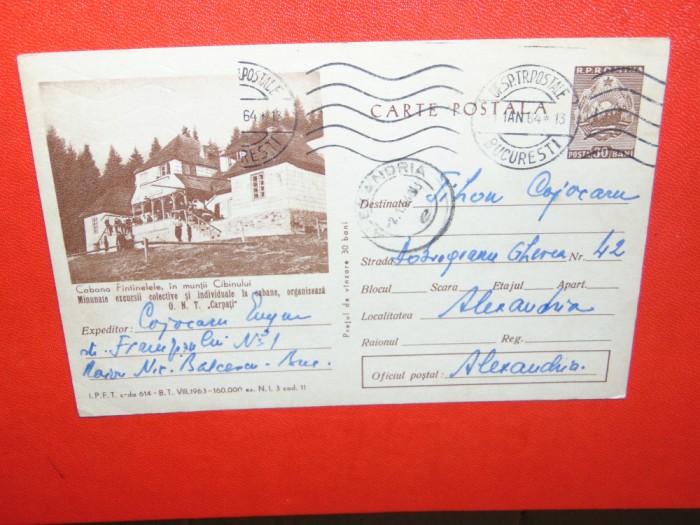 POSTALE
64 * 13
BUCURESTI
Cabana Fîntînelele, în munții Cibinului
Minunate excursii colective și individuale la cabane, organizează
O. N. T. „Carpați"
Expeditor: Cojocaru
str. No 1
Raion N. Balcescu - Buc.
I.P.F.T. c-da 614 - B.T. VIII.1963-160.000 ex. N.I. 3 cod. 11
Prețul de vînzare 30 bani
CARTE POSTALA
SP.TR.POSTALE
1 IAN 64 * 13
BUCURESTI
R.P.ROMINA
POSTA 30 BANI
ALEXANDRIA
Destinatar Tihon Cojocaru
Strada Dobrogeanu Gherea Nr. 42
Blocul Scara Etajul Apart.
Localitatea Alexandria
Raionul Reg.
Oficiul poștal: Alexandria.